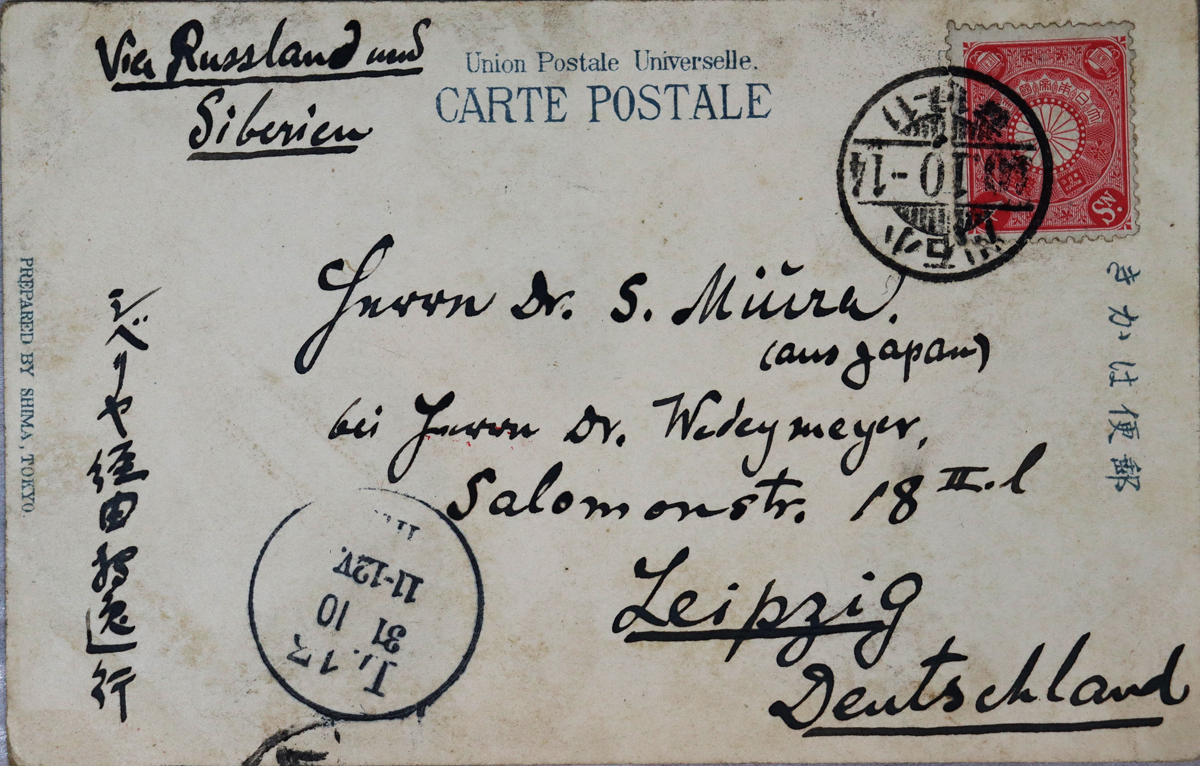 Via Russland und
Siberien
Union Postale Universelle.
CARTE POSTALE
Herrn Dr. S. Miüra.
(aus Japan)
bei Herrn Dr. Wedeymeyer,
Salomonstr. 18 II. l
Leipzig
Deutschland
きかは便郵
シベリヤ経由獨逸行
PREPARED BY SHIMA, TOKYO
40.10-14
小石川
Sn.
L. 13
31 10
11-12V.